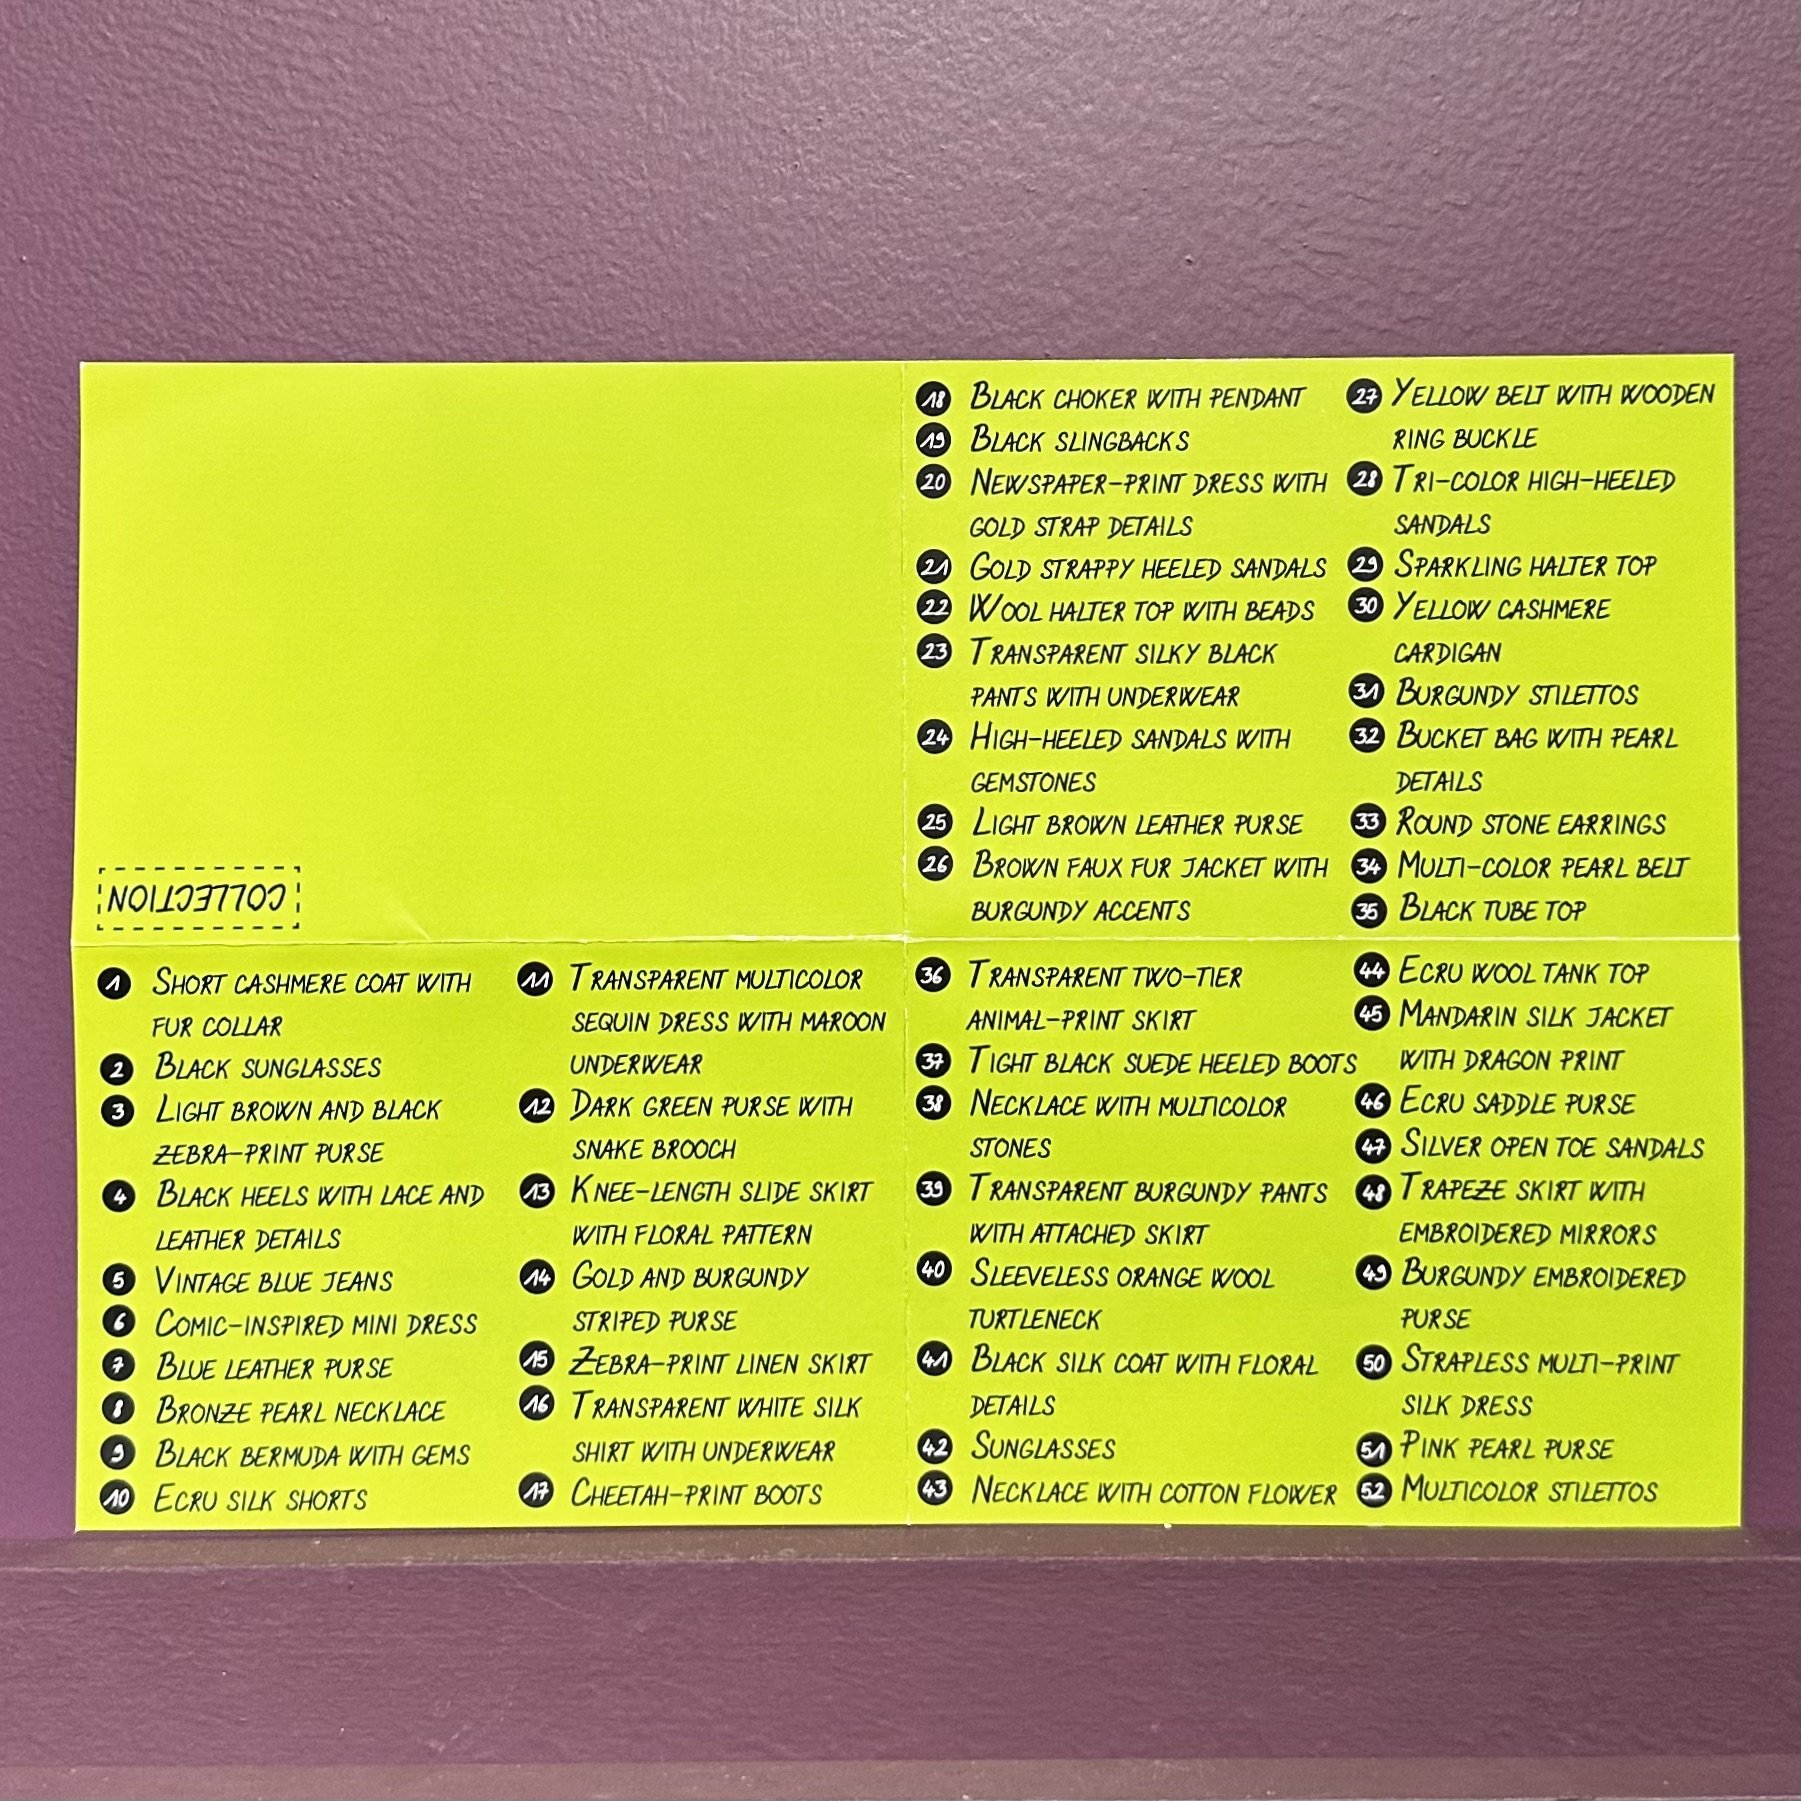 COLLECTION
1 SHORT CASHMERE COAT WITH
FUR COLLAR
2 BLACK SUNGLASSES
3 LIGHT BROWN AND BLACK
ZEBRA-PRINT PURSE
4 BLACK HEELS WITH LACE AND
LEATHER DETAILS
5 VINTAGE BLUE JEANS
6 COMIC-INSPIRED MINI DRESS
7 BLUE LEATHER PURSE
8 BRONZE PEARL NECKLACE
9 BLACK BERMUDA WITH GEMS
10 ECRU SILK SHORTS
11 TRANSPARENT MULTICOLOR
SEQUIN DRESS WITH MAROON
UNDERWEAR
12 DARK GREEN PURSE WITH
SNAKE BROOCH
13 KNEE-LENGTH SLIDE SKIRT
WITH FLORAL PATTERN
14 GOLD AND BURGUNDY
STRIPED PURSE
15 ZEBRA-PRINT LINEN SKIRT
16 TRANSPARENT WHITE SILK
SHIRT WITH UNDERWEAR
17 CHEETAH-PRINT BOOTS
18 BLACK CHOKER WITH PENDANT
19 BLACK SLINGBACKS
20 NEWSPAPER-PRINT DRESS WITH
GOLD STRAP DETAILS
21 GOLD STRAPPY HEELED SANDALS
22 WOOL HALTER TOP WITH BEADS
23 TRANSPARENT SILKY BLACK
PANTS WITH UNDERWEAR
24 HIGH-HEELED SANDALS WITH
GEMSTONES
25 LIGHT BROWN LEATHER PURSE
26 BROWN FAUX FUR JACKET WITH
BURGUNDY ACCENTS
27 YELLOW BELT WITH WOODEN
RING BUCKLE
28 TRI-COLOR HIGH-HEELED
SANDALS
29 SPARKLING HALTER TOP
30 YELLOW CASHMERE
CARDIGAN
31 BURGUNDY STILETTOS
32 BUCKET BAG WITH PEARL
DETAILS
33 ROUND STONE EARRINGS
34 MULTI-COLOR PEARL BELT
35 BLACK TUBE TOP
36 TRANSPARENT TWO-TIER
ANIMAL-PRINT SKIRT
37 TIGHT BLACK SUEDE HEELED BOOTS
38 NECKLACE WITH MULTICOLOR
STONES
39 TRANSPARENT BURGUNDY PANTS
WITH ATTACHED SKIRT
40 SLEEVELESS ORANGE WOOL
TURTLENECK
41 BLACK SILK COAT WITH FLORAL
DETAILS
42 SUNGLASSES
43 NECKLACE WITH COTTON FLOWER
44 ECRU WOOL TANK TOP
45 MANDARIN SILK JACKET
WITH DRAGON PRINT
46 ECRU SADDLE PURSE
47 SILVER OPEN TOE SANDALS
48 TRAPEZE SKIRT WITH
EMBROIDERED MIRRORS
49 BURGUNDY EMBROIDERED
PURSE
50 STRAPLESS MULTI-PRINT
SILK DRESS
51 PINK PEARL PURSE
52 MULTICOLOR STILETTOS